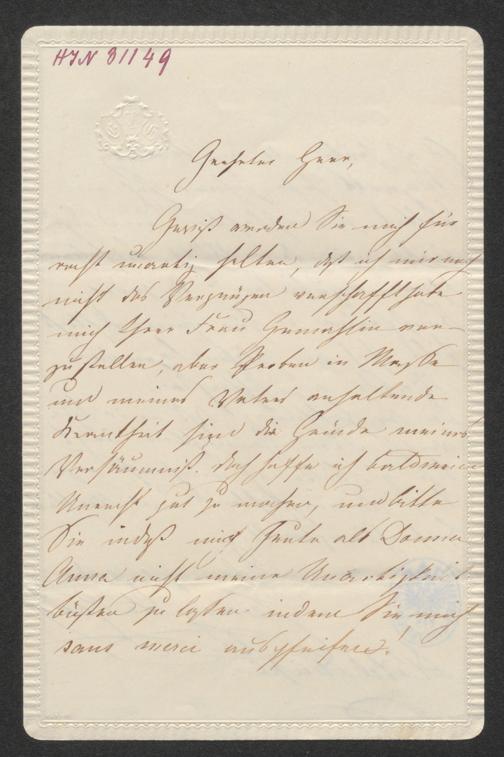 HIN 31149
Geehrter Herr,
Gewiß werden Sie mich für
recht unartig halten, daß ich mir noch
nicht das Vergnügen verschafft habe
mich Ihrer Frau Gemahlin vor-
zustellen, aber Proben in Masse
und meines Vaters anhaltende
Krankheit sind die Gründe meines
Versäumniß. Doch hoffe ich bald mein
Unrecht gut zu machen, und bitte
Sie indeß mich heute als Donna
Anna nicht meine Unartigkeit
büßen zu lassen indem Sie mich
sans merci auspfeifen!